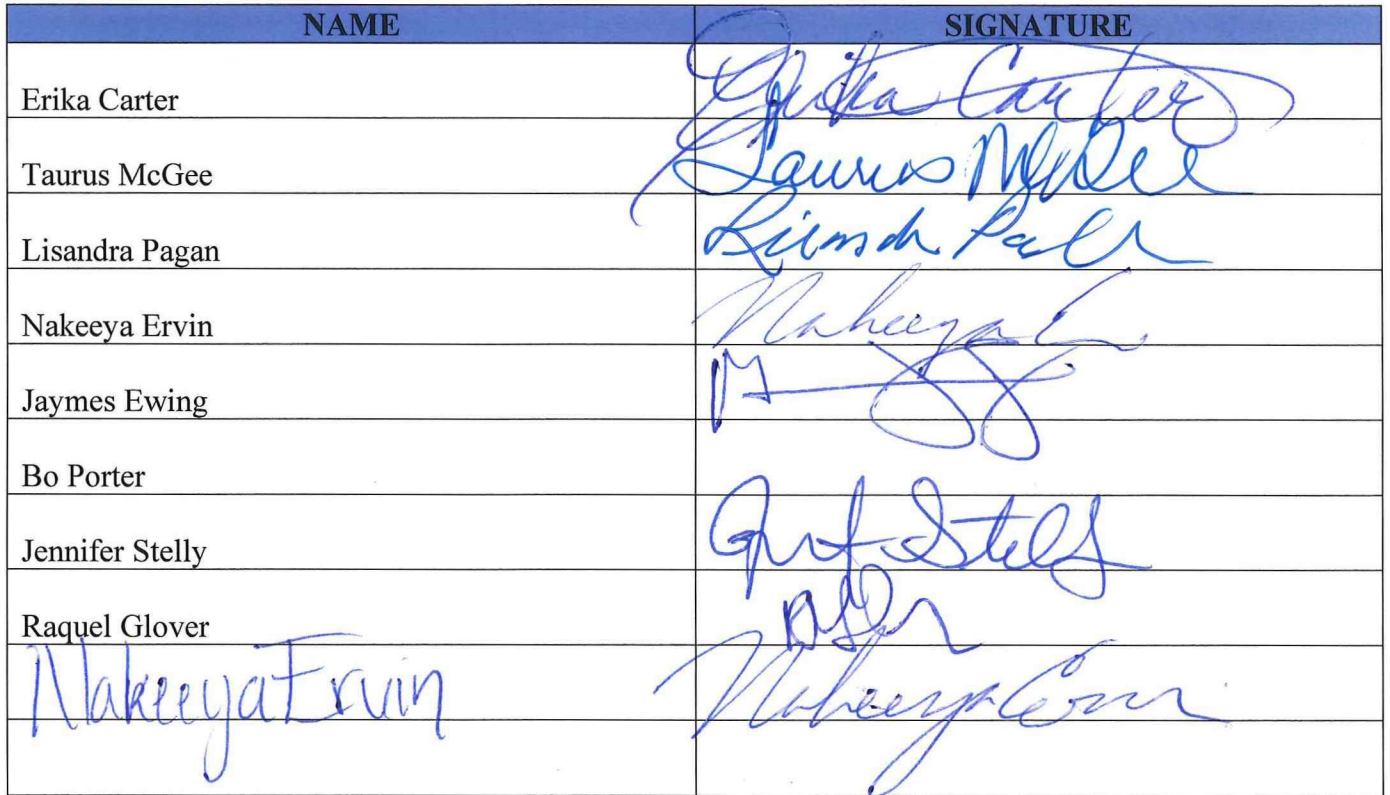 NAME SIGNATURE
Erika Carter Erika Carter
Taurus McGee Taurus McGee
Lisandra Pagan
Nakeeya Ervin Nakeeya E
Jaymes Ewing
Bo Porter
Jennifer Stelly Stelly
Raquel Glover
Nakeeya Ervin Nakeeya Ervin